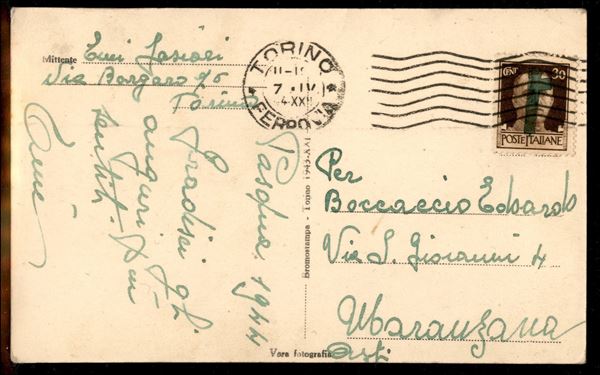 Mittente
Via Borgaro 76
Torino
TORINO
7 IV
4-XXII
FERROVIA
CENT 30
POSTE ITALIANE
Pasqua 1944
Gradisci gli
auguri più
sentiti
Bromostampa - Torino 1943-XXI
Per
Boccaccio Edoardo
Via S. Giovanni 4
Maranzana
Asti
Vera fotografia